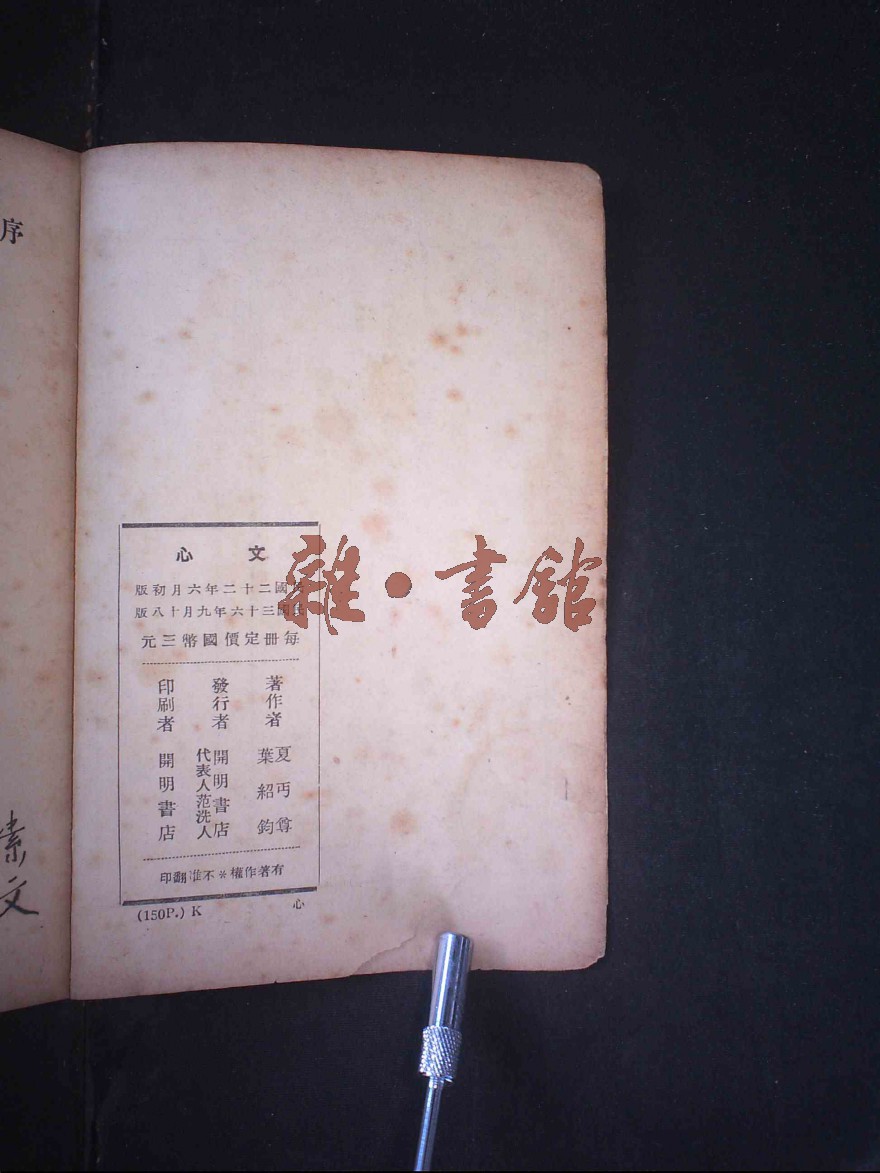 序
素文
文心
民國二十二年六月初版
民國三十六年九月十八版
每冊定價國幣三元
著作者 夏丏尊
葉紹鈞
發行者 開明書店
代表人范洗人
印刷者 開明書店
有著作權※不准翻印
(150P.) K 心
雜·書館